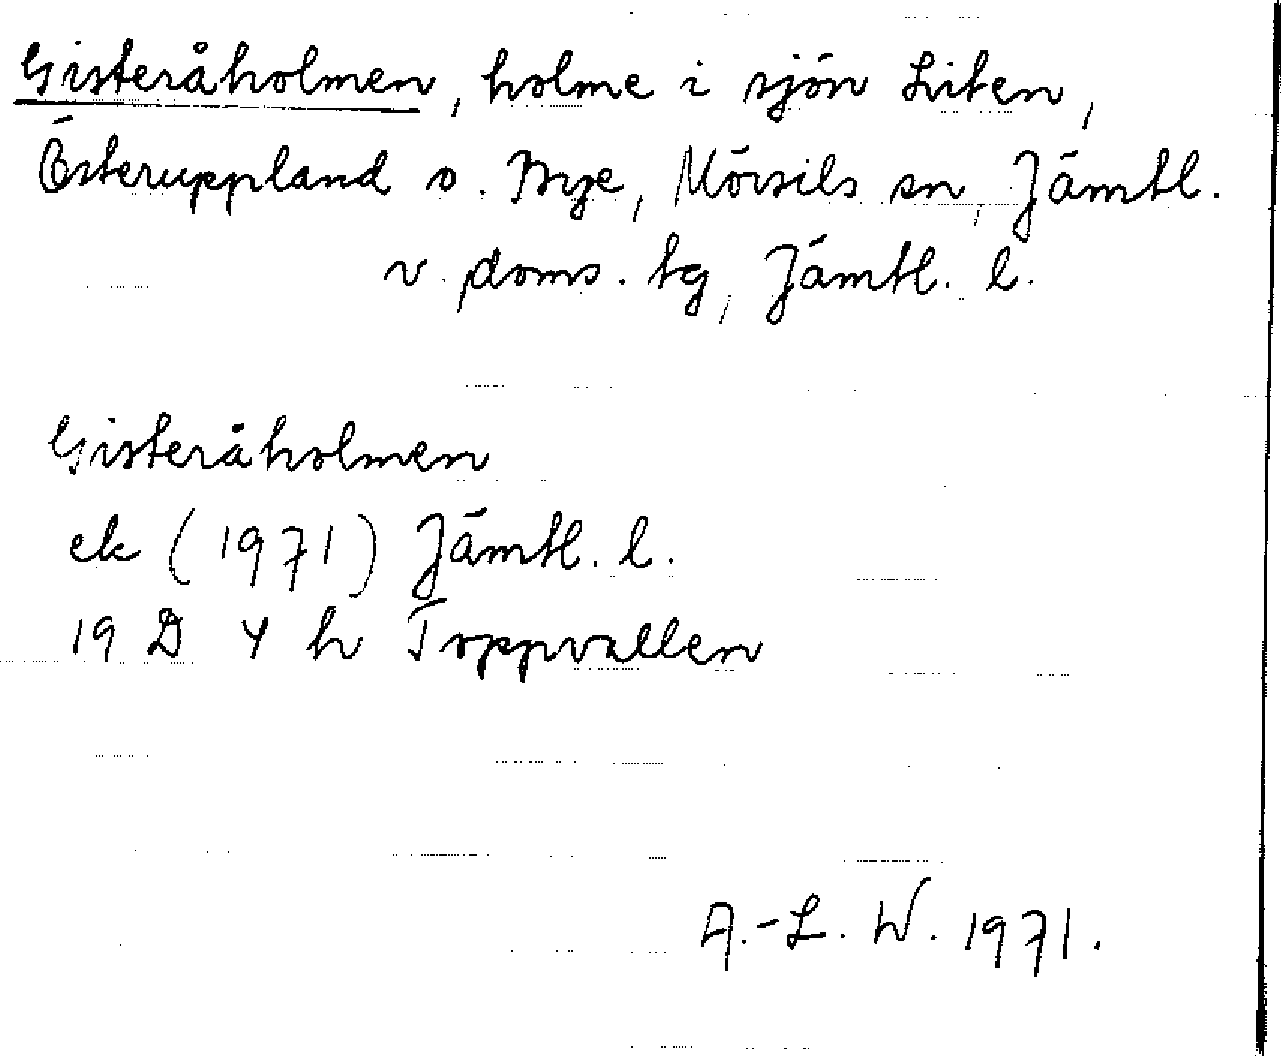 Gisteråholmen, holme i sjön Liten,
Österuppland o. Bye, Mörsils sn, Jämtl.
v. doms. tg, Jämtl. l.
Gisteråholmen
ek (1971) Jämtl. l.
19 D Y h Toppvallen
A.-L. W. 1971.